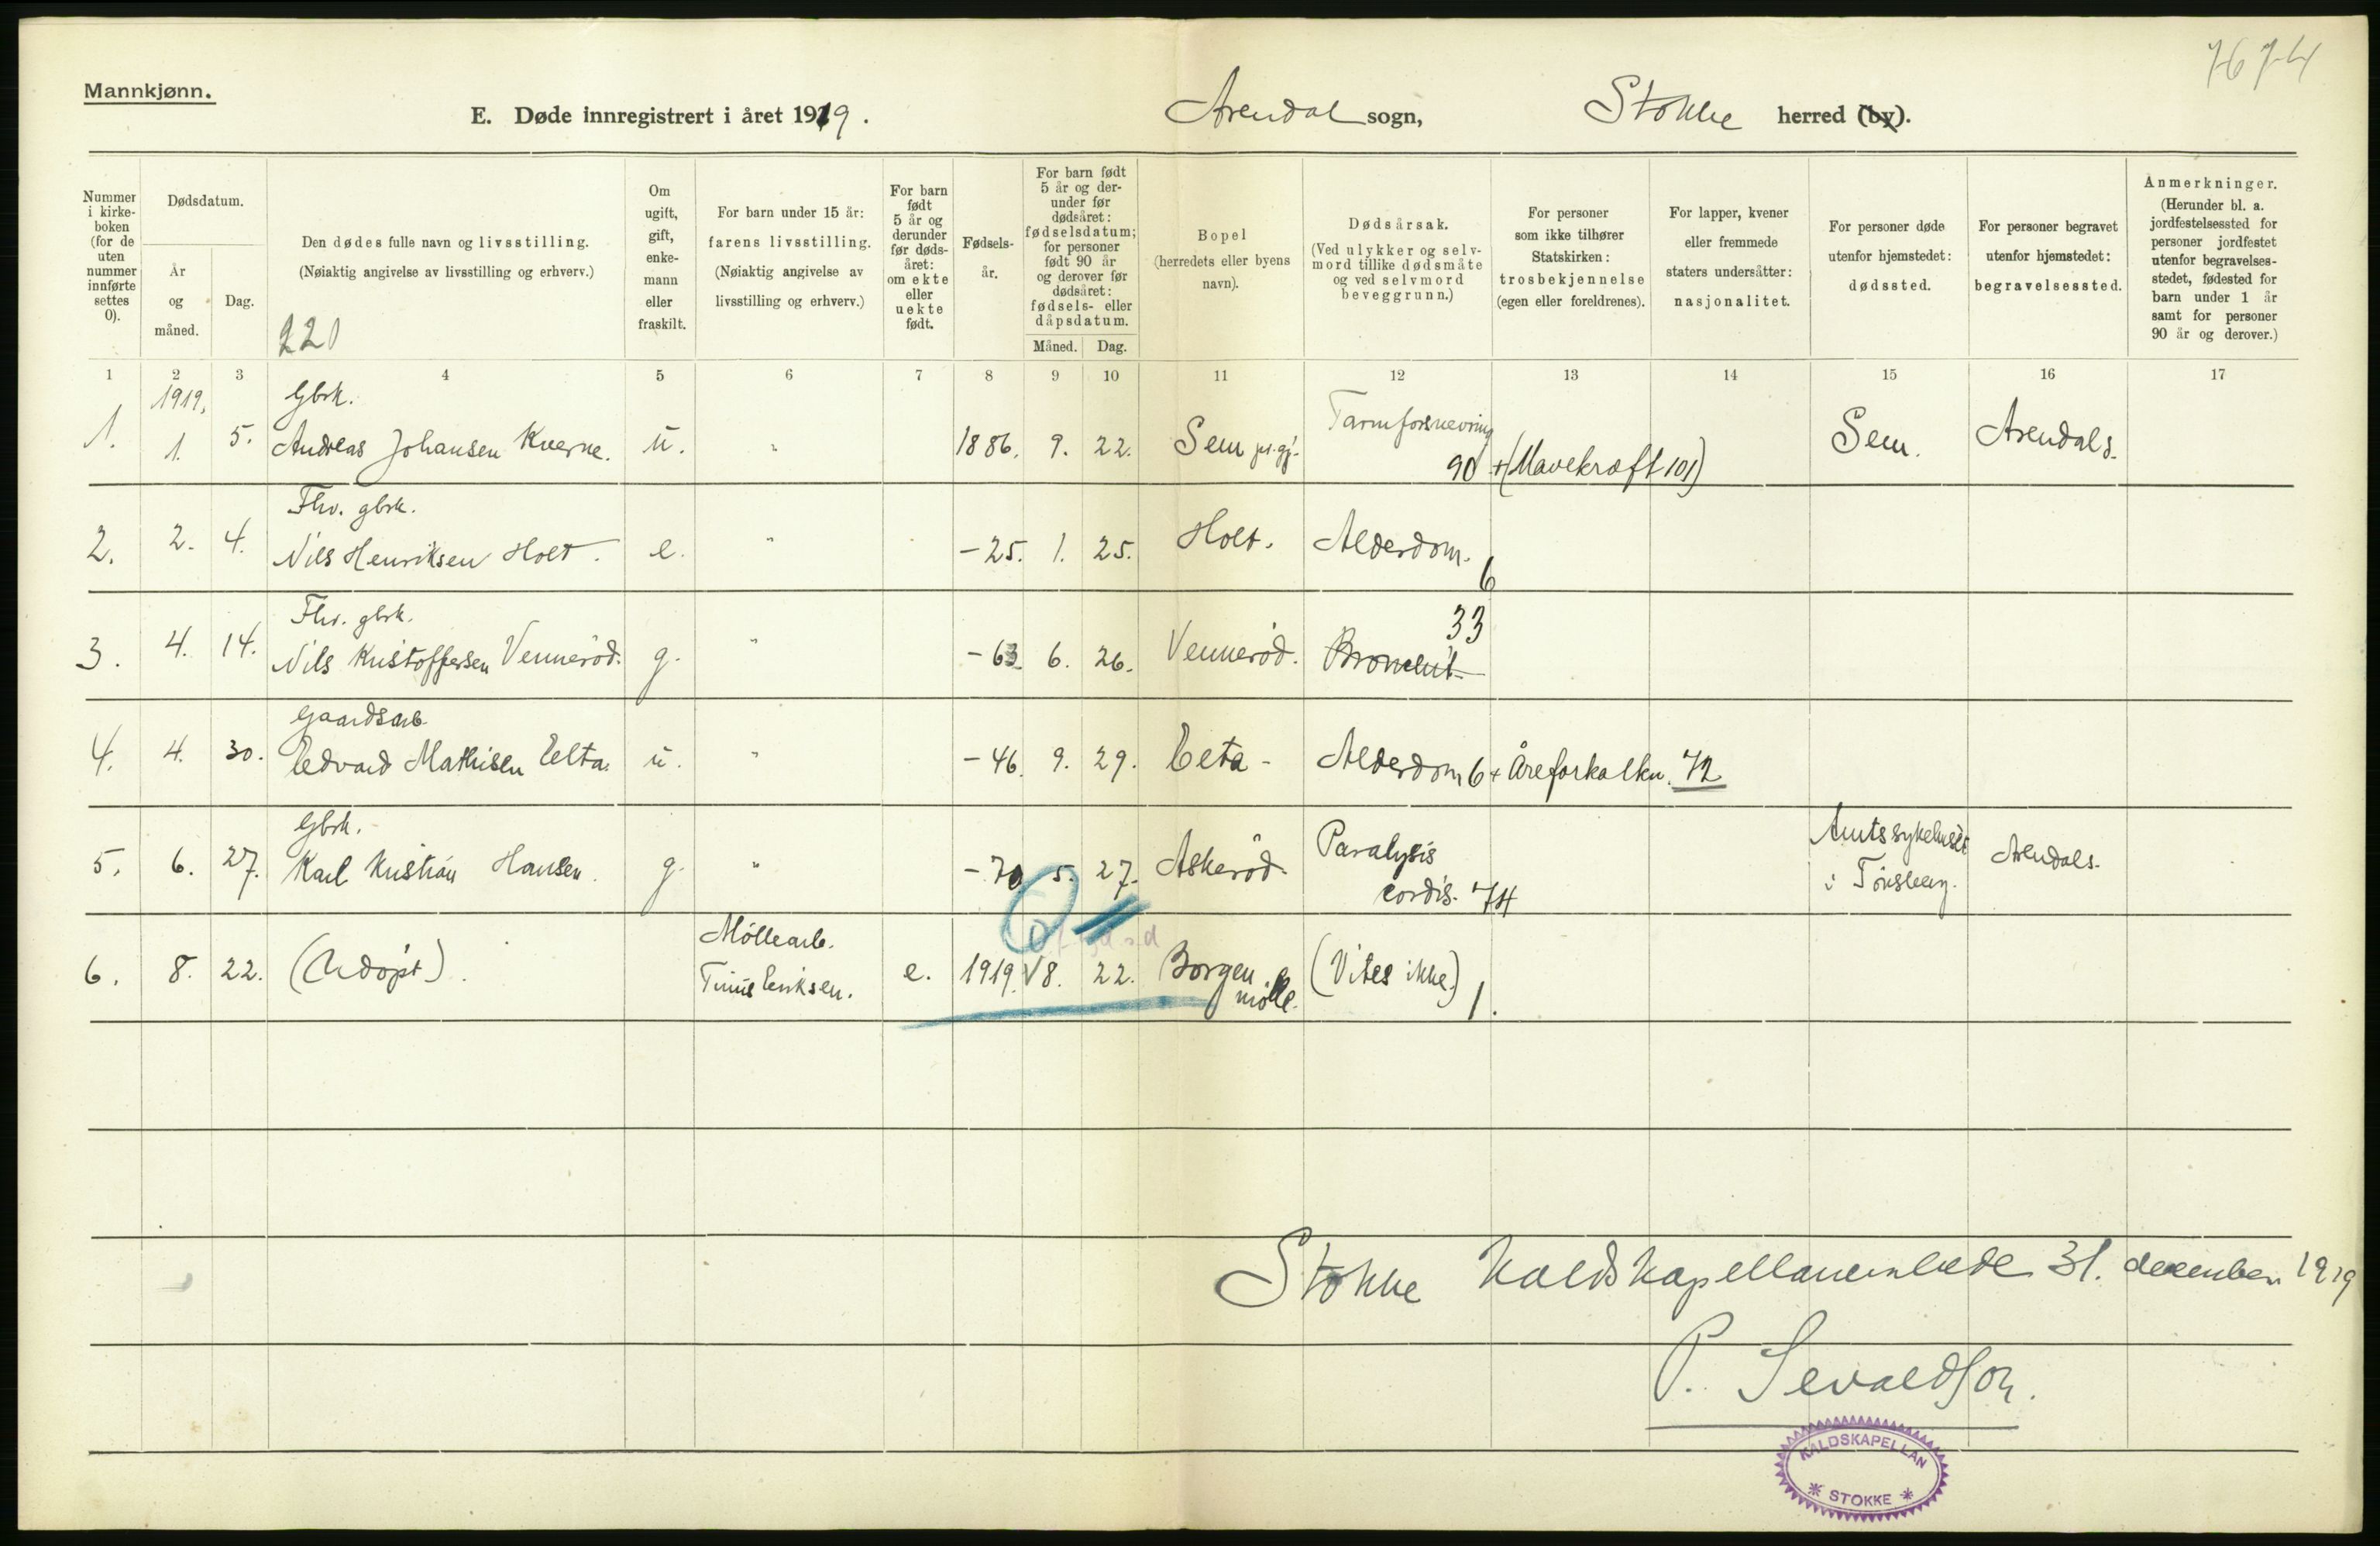 7674
Mannkjønn.
E. Døde innregistrert i året 1919. Arendal sogn, Stokke herred (by).
Nummer i kirkeboken (for de uten nummer innførte settes 0).
Dødsdatum.
År og måned.
Dag.
Den dødes fulle navn og livsstilling.
(Nøiaktig angivelse av livsstilling og erhverv.)
220
Om ugift, gift, enkemann eller fraskilt.
For barn under 15 år:
farens livsstilling.
(Nøiaktig angivelse av livsstilling og erhverv.)
For barn født 5 år og derunder før dødsåret: om ekte eller uekte født.
Fødselsår.
For barn født 5 år og derunder før dødsåret: fødselsdatum; for personer født 90 år og derover før dødsåret: fødsels- eller dåpsdatum.
Måned. Dag.
Bopel
(herredets eller byens navn).
Dødsårsak.
(Ved ulykker og selvmord tillike dødsmåte og ved selvmord beveggrunn.)
For personer som ikke tilhører Statskirken: trosbekjennelse (egen eller foreldrenes).
For lapper, kvener eller fremmede staters undersåtter: nasjonalitet.
For personer døde utenfor hjemstedet: dødssted.
For personer begravet utenfor hjemstedet: begravelsessted.
Anmerkninger.
(Herunder bl. a. jordfestelsessted for personer jordfestet utenfor begravelsesstedet, fødested for barn under 1 år samt for personer 90 år og derover.)
1 2 3 4 5 6 7 8 9 10 11 12 13 14 15 16 17
1919, Gbrk. Tarmforsnevring
1. 1. 5. Andreas Johansen Kverne. u. " 1886. 9. 22. Sem pr.gj. 90 + (Mavekræft 101) Sem. Arendals.
Fhv. gbrk.
2. 2. 4. Nils Henriksen Holt. e. " -25. 1. 25. Holt. Alderdom. 6
Fhv. gbrk. 33
3. 4. 14. Nils Kristoffersen Venneröd. g. " -63 6. 26. Venneröd. Bronchit
Gaardsarb.
4. 4. 30. Edvard Mathisen Eelta. u. " -46. 9. 29. Eeta - Alderdom 6 + Åreforkalkn. 72
Gbrk. Paralysis Amtssykehuset
5. 6. 27. Karl Kristian Hansen. g. " -70 5. 27. Askeröd. cordis. 74 i Tönsberg. Arendals.
Möllearb.
6. 8. 22. (Udöpt). Tinius Eriksen. e. 1919. 8. 22. Borgen mölle. (Vites ikke.) 1.
Stokke Kaldskapellanembede 31. december 1919
P. Sevaldson.
KALDSKAPELLAN
* STOKKE *